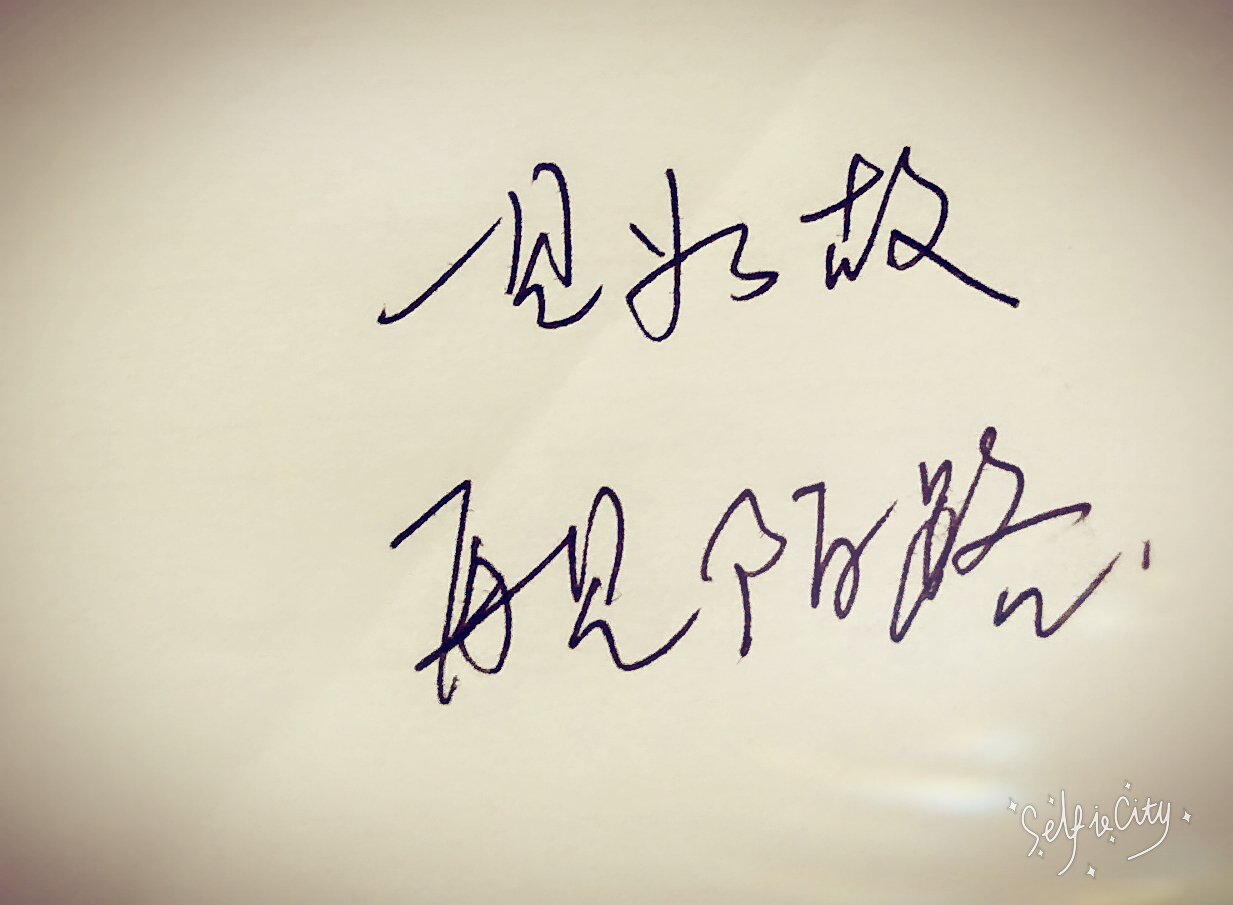 一见如故
再见陌路
SelfieCity